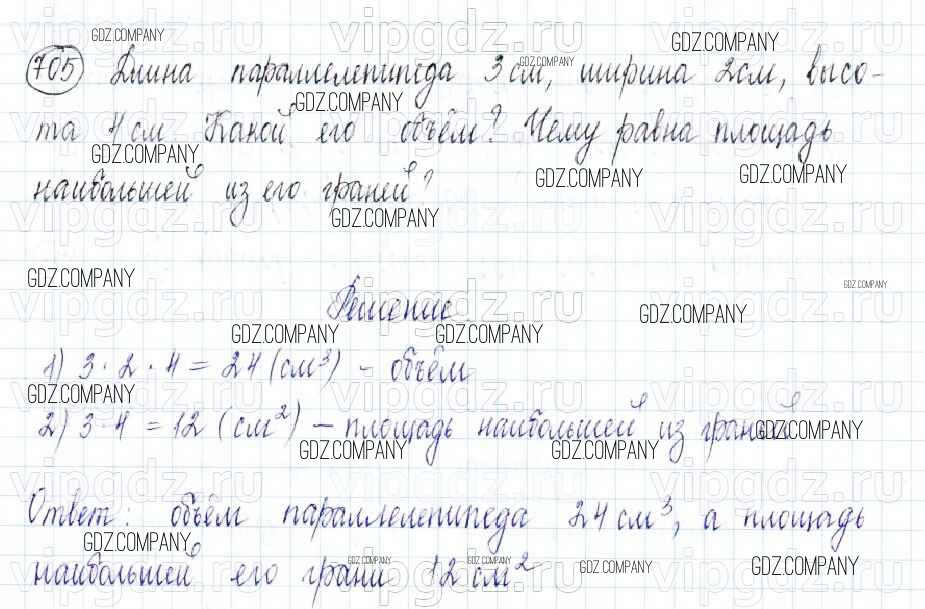 705 Длина параллелепипеда 3 см, ширина 2 см, высо-
та 4 см. Какой его объём? Чему равна площадь
наибольшей из его граней?
Решение
1) 3 · 2 · 4 = 24 (см³) - объём
2) 3 · 4 = 12 (см²) — площадь наибольшей из граней
Ответ: объём параллелепипеда 24 см³, а площадь
наибольшей его грани 12 см²
GDZ.COMPANY
vipgdz.ru